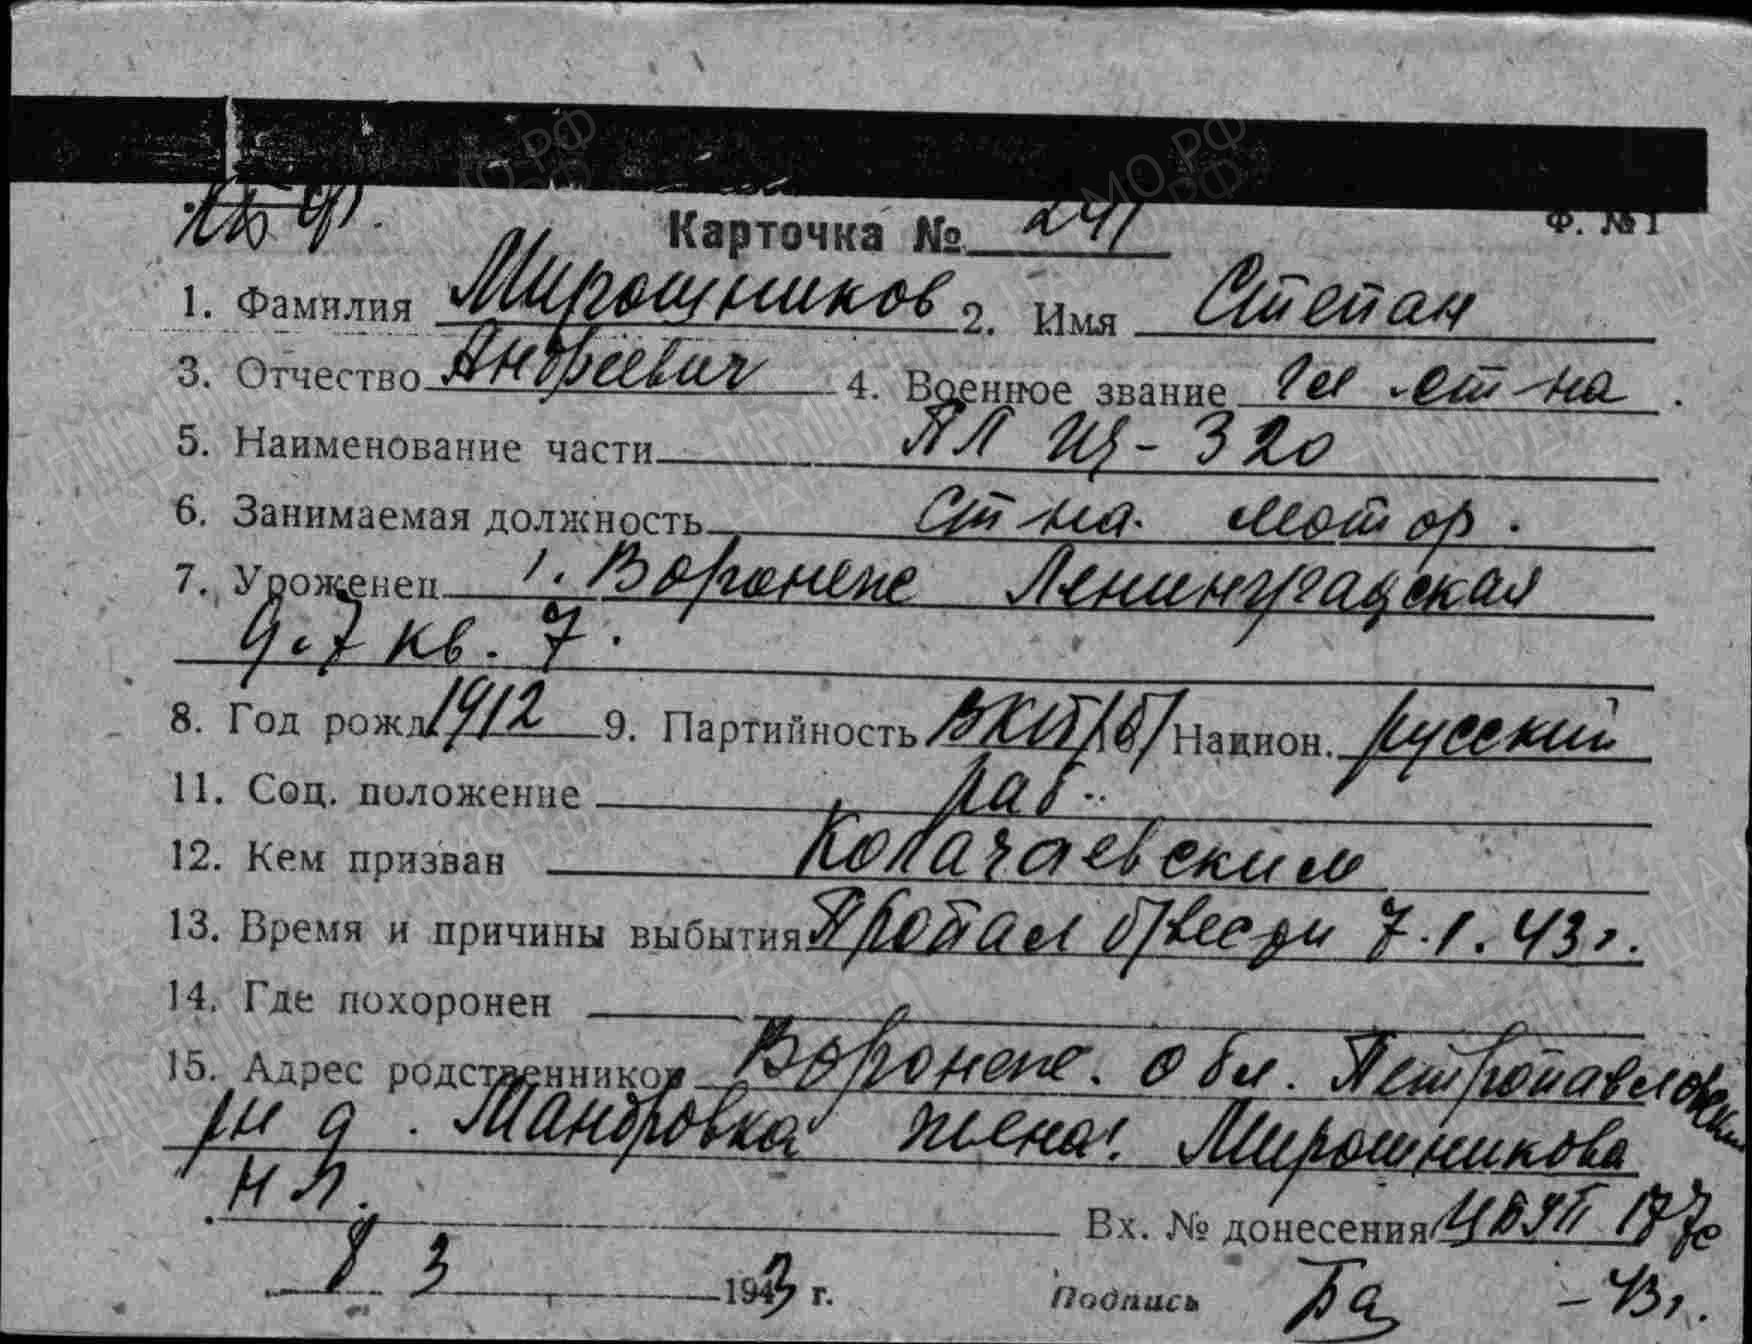 КБФ.
Карточка № 241
Ф. № 1
1. Фамилия Мирошников 2. Имя Степан
3. Отчество Андреевич 4. Военное звание Гл ст-на
5. Наименование части ПЛ Щ-320
6. Занимаемая должность Ст-на мотор.
7. Уроженец г. Воронеже Ленинградская
д. 7 кв. 7.
8. Год рожд 1912 9. Партийность ВКП/б/ Национ. русский
11. Соц. положение раб..
12. Кем призван Колачаевским
13. Время и причины выбытия Пропал б/вести 7.1.43г.
14. Где похоронен
15. Адрес родственников Воронеже. обл. Петропавловский
рн д. Мандровка жена: Мирошникова
Н Л.
Вх. № донесения 177с
8 3 1943 г. Подпись -43г.